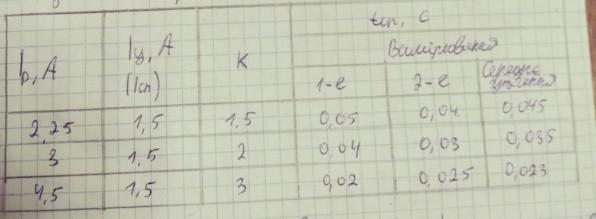 tсп, с
Iр, А Iу, А (Iсп) К Вимірювання
1-е 2-е Середнє значення
2,25 1,5 1,5 0,05 0,04 0,045
3 1,5 2 0,04 0,03 0,035
4,5 1,5 3 0,02 0,025 0,023